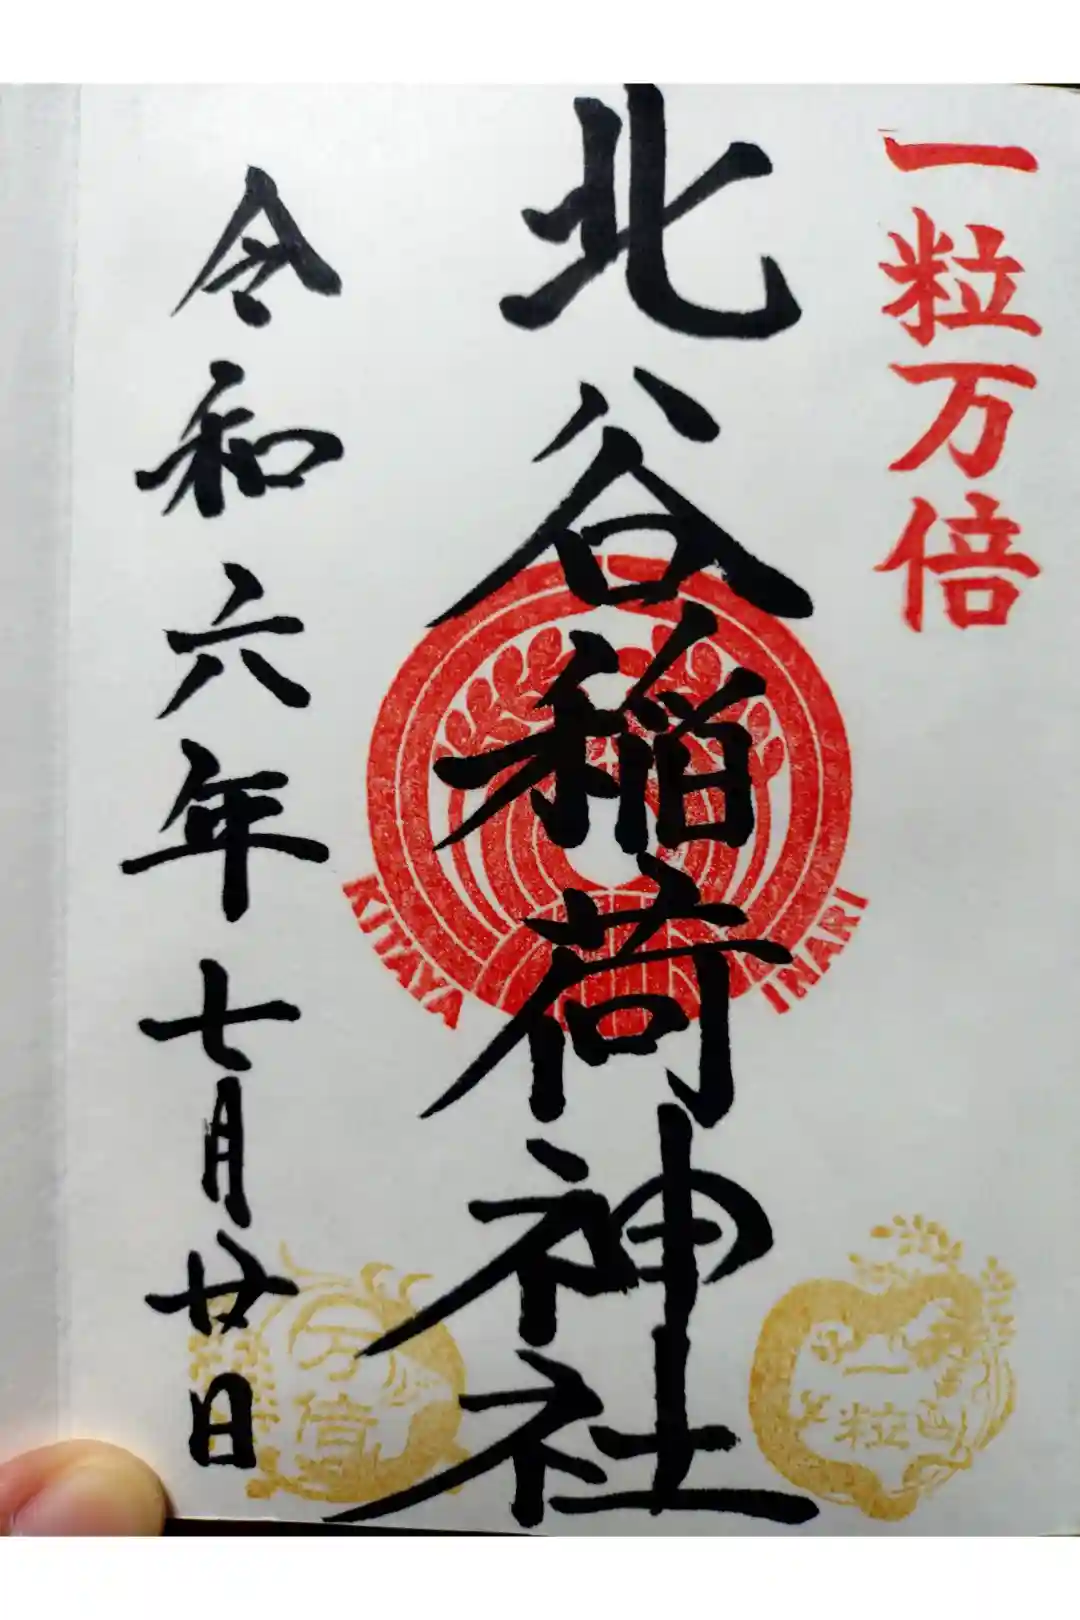 一粒万倍
北谷稲荷神社
KITAYA
INARI
令和六年七月廿日
一粒
万倍